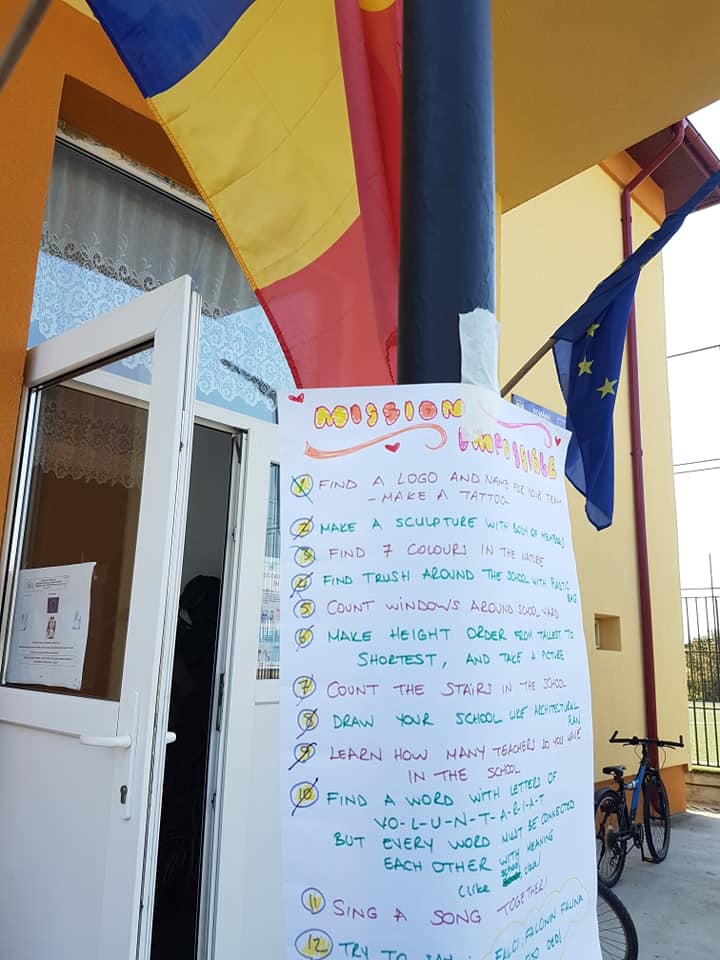 MISSION
IMPOSSIBLE
1 FIND A LOGO AND NAME FOR YOUR TEAM
- MAKE A TATTOO
2 MAKE A SCULPTURE WITH BODY OF MEMBERS
3 FIND 7 COLOURS IN THE NATURE
4 FIND TRUSH AROUND THE SCHOOL WITH PLASTIC
BAG
5 COUNT WINDOWS AROUND SCHOOL YARD
6 MAKE HEIGHT ORDER FROM TALLEST TO
SHORTEST, AND TAKE A PICTURE
7 COUNT THE STAIRS IN THE SCHOOL
8 DRAW YOUR SCHOOL LIKE ARCHITECTURAL
PLAN
9 LEARN HOW MANY TEACHERS DO YOU HAVE
IN THE SCHOOL
10 FIND A WORD WITH LETTERS OF
VO-L-U-N-T-A-R-I-A-T
BUT EVERY WORD MUST BE CONNECTED
EACH OTHER WITH MEANING
(like school, class)
11 SING A SONG TOGETHER!
12 TRY TO SAY:
FALCI, FALCONIN FALINA